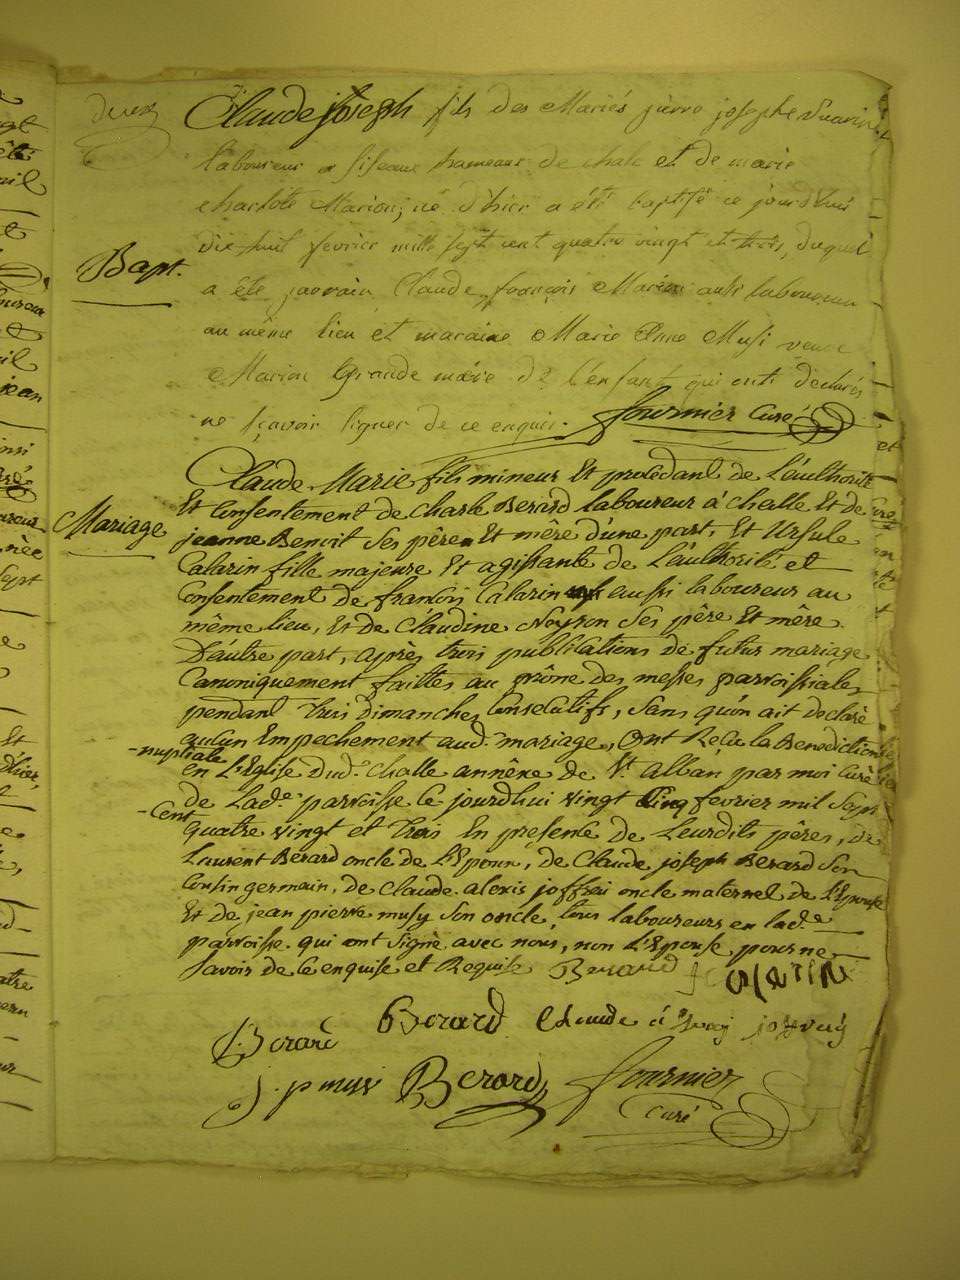 Claude joseph fils des Mariés pierre josephe
laboureur de chale et de marie
charlote Marion, né d'hier a été baptisé ce jourd'huí
dix huit fevrier mille sept cent quatre vingt et trois, duquel
Bapt.
a éte parrain Claude françois Marion aussi laboureur
au même lieu et maraine Marie Anne Musi veuve
Marion Grande mére de l'enfant qui ont declarés
ne sçavoir signer de ce enquis. fournier Curé
Claude Marie fils mineur Et procedant de L'authorité
Et Consentement de Charle Berard laboureur à challe Et de
Mariage
jeanne Benoit Ses père Et mère d'une part, Et Ursule
Calarin fille majeure Et agissante de L'authorité et
Consentement de francois Calarin aussi laboureur au
même lieu, Et de Claudine Neyron Ses père Et mère
D'autre part, après trois publications de futur mariage
Canoniquement faittes au prône des messes parroissiales
pendant trois dimanches Consecutifs, Sans qu'on ait declaré
aucun Empechement aud. mariage, Ont Reçu la Benediction
-nuptiale
en L'Eglise dud. Challe annexe de St. alban par moi Curé
de Lade. parroisse Ce jourdhui vingt Cinq fevrier mil Sept
-Cent
quatre vingt et trois En presence de Leurdits pères, de
Laurent Berard oncle de L'Epoux, de Claude joseph Berard Son
Cousin germain, de Claude alexis joffrai oncle maternel de L'Epouse
Et de jean pierre musy Son oncle, tous laboureurs en lade.
parroisse qui ont Signé avec nous, non L'Epouse, pour ne
Savoir de Ce enquise et Requise Berard
L. Berard Berard Claude
j. p musi Berard fournier
Curé